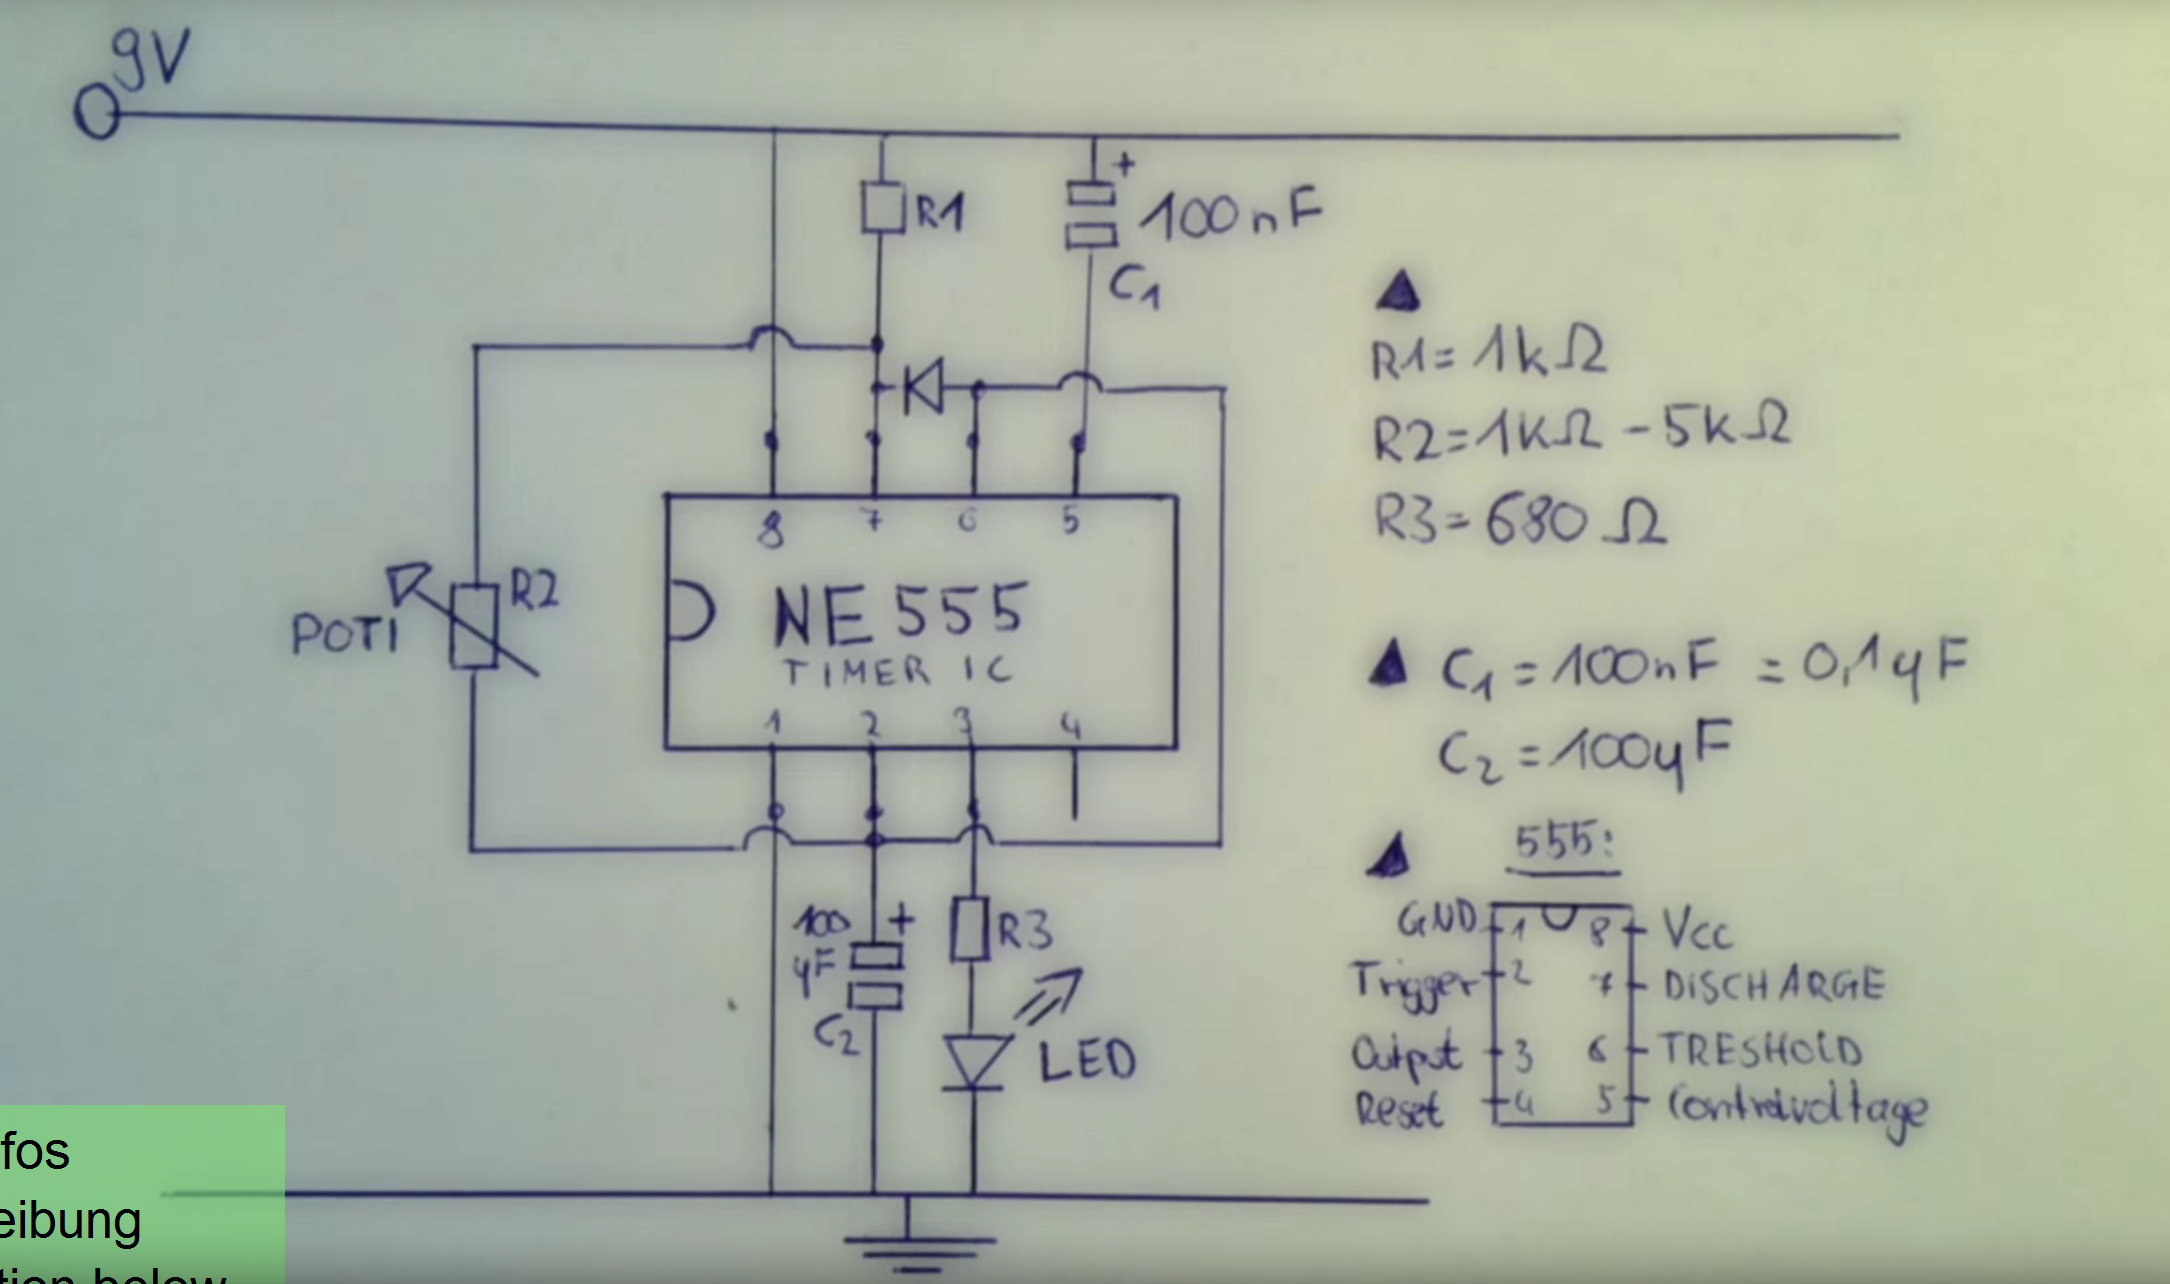 9V
R1
+
100nF
C1
R1= 1kΩ
R2= 1kΩ - 5kΩ
R3= 680 Ω
8 7 6 5
POTI
R2
NE 555
TIMER IC
1 2 3 4
C1 = 100nF = 0,1µF
C2 = 100µF
555:
GND 1 8 Vcc
Trigger 2 7 DISCHARGE
Output 3 6 TRESHOLD
Reset 4 5 Controlvoltage
100
µF
+
C2
R3
LED
fos
eibung
tion below